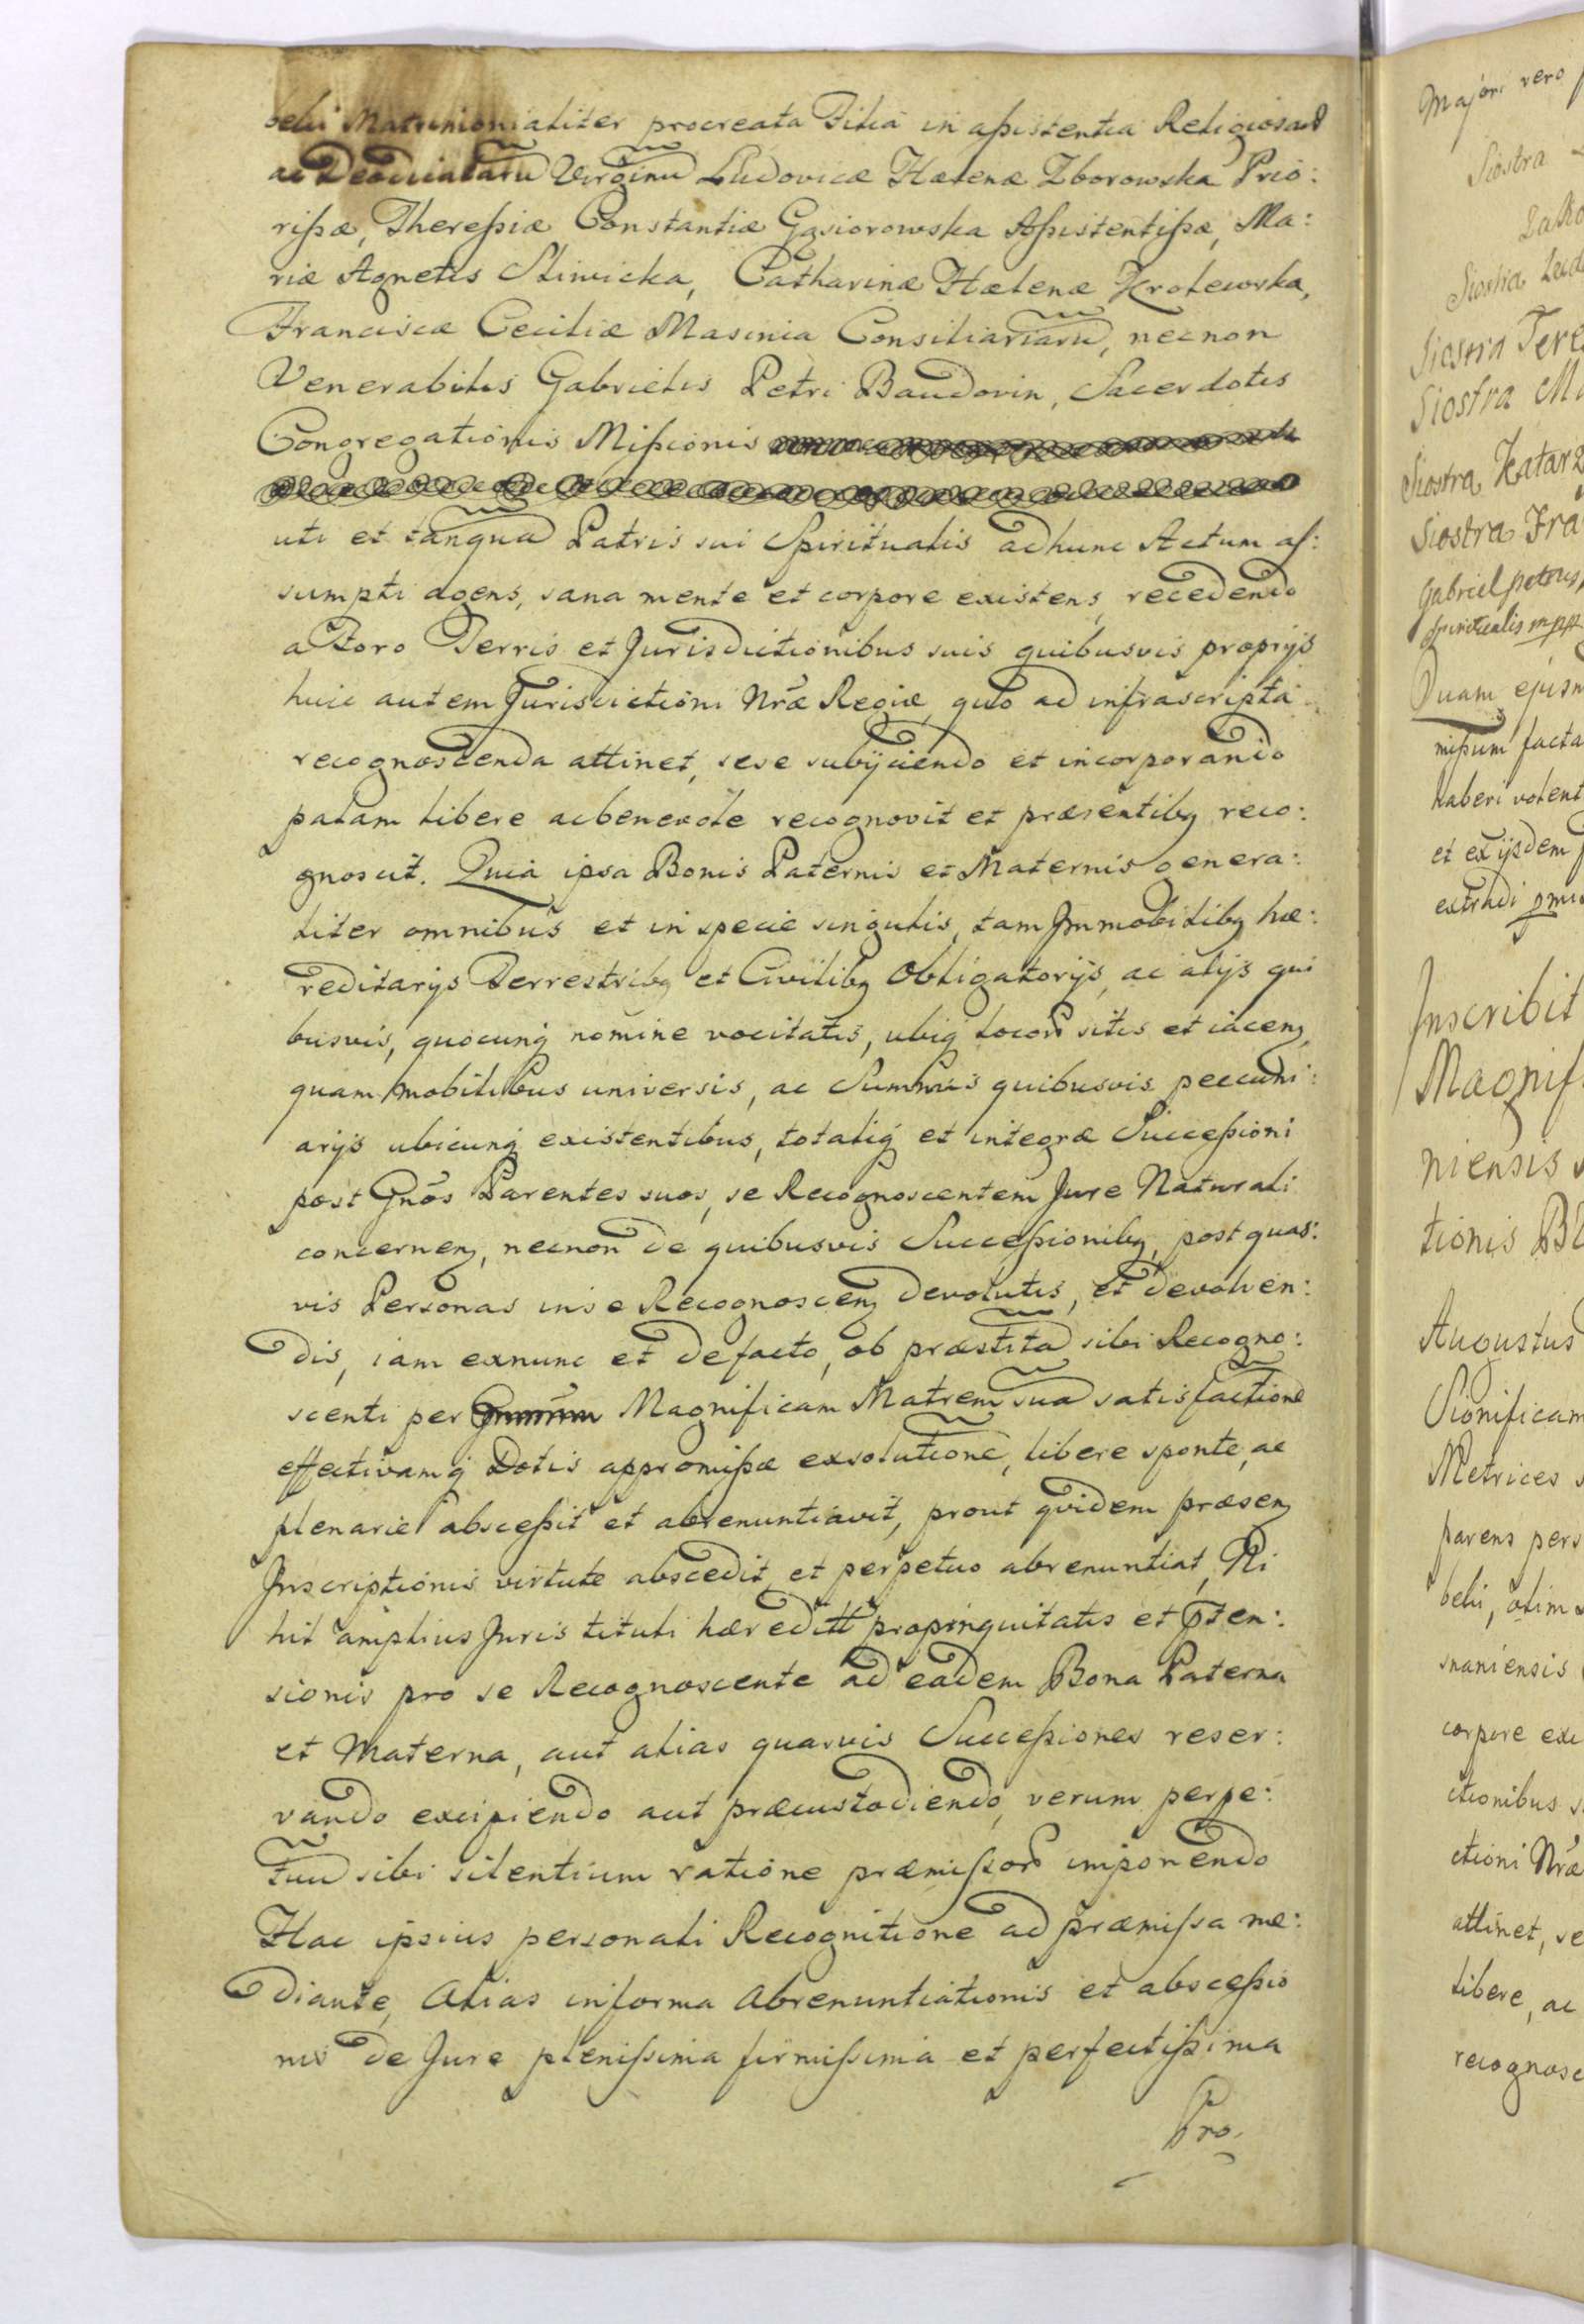 belu Matrimonialiter procreata Filia in aſsistentia Religiosarũ
ac Deodicatarũ Virginũ Ludovicæ Hælenæ Zborowska Prio:
riſsæ, Thereſsiæ Constantiæ Gąsiorowska Aſsistentiſsæ, Ma:
riæ Agnetis Sliwicka, Catharinæ Hælenæ Krolewska,
Franciscæ Ceciliæ Masinia Consiliariarũ, necnon
Venerabilis Gabrielis Petri Baudovin, Sacerdotis
Congregationis Miſsionis
uti et tanquã Patris sui Spiritualis ad hunc Actum aſ:
sumpti agens, sana mente et corpore existens, recedendo
a Foro Terris et Jurisdictionibus suis quibusvis proprijs
huic autem Jurisdictioni Nræ Regiæ, quo ad infrascripta
recognoscenda attinet, sese subijciendo et incorporando
palam libere ac benevole recognovit et præsentibq reco:
gnoscit. Quia ipsa Bonis Paternis et Maternis genera:
liter omnibus et in specie singulis, tam Immobilibq hæ:
reditarijs Terrestribq et Civilibq Obligatorijs, ac alijs qui
busvis, quocunq́ nomine vocitatis, ubiq́ locorũ sitis et iacenq,
quam mobilibus universis, ac Summis quibusvis peccuni:
arijs ubicunq́ existentibus, totaliq́ et integræ Succeſsioni
post Gnõs Parentes suos, se Recognoscentem Jure Naturali
concernenq, necnon de quibusvis Succeſsionibq, post quas:
vis Personas in se Recognoscenq devolutis, et devolven:
dis, iam exnunc et de facto, ob præstitã sibi Recogno:
scenti per Magnificam Matrem suã satisfactionẽ
effectivamq́ Dotis appromiſsæ exsolutionẽ, libere sponte, ac
plenarie absceſsit et abrenuntiavit, prout quidem præsenq
Inscriptionis virtute abscedit, et perpetuo abrenuntiat, Ni
hil amplius Juris tituli hæreditt propinquitatis et p̃ten:
sionis pro se Recognoscente ad eadem Bona Paterna
et Materna, aut alias quasvis Succeſsiones reser:
vando excipiendo aut præcustodiendo, verum perpe:
tuũ sibi silentium ratione præmiſsorũ imponendo
Hac ipsius personali Recognitione ad præmiſsa me:
diante, Alias in forma Abrenuntiationis et absceſsio
nis de Jure pleniſsima firmiſsima et perfectiſsima
Pro.
Majori vero
Siostra
Siostra
Siostra Tere
Siostra
Siostra Katarz
Siostra Fra
Gabriel petrus,
spiritualis mpp
Quam ejusm
miſsum facta
haberi volent
et ex ijsdem
extrahi
Inscribit
Magnif
niensis
tionis
Augustus
Significam
Metrices
parens pers
belu, olim
snaniensis
corpore exi
ctionibus s
ctioni Nræ
attinet, se
libere, ac
recognosc